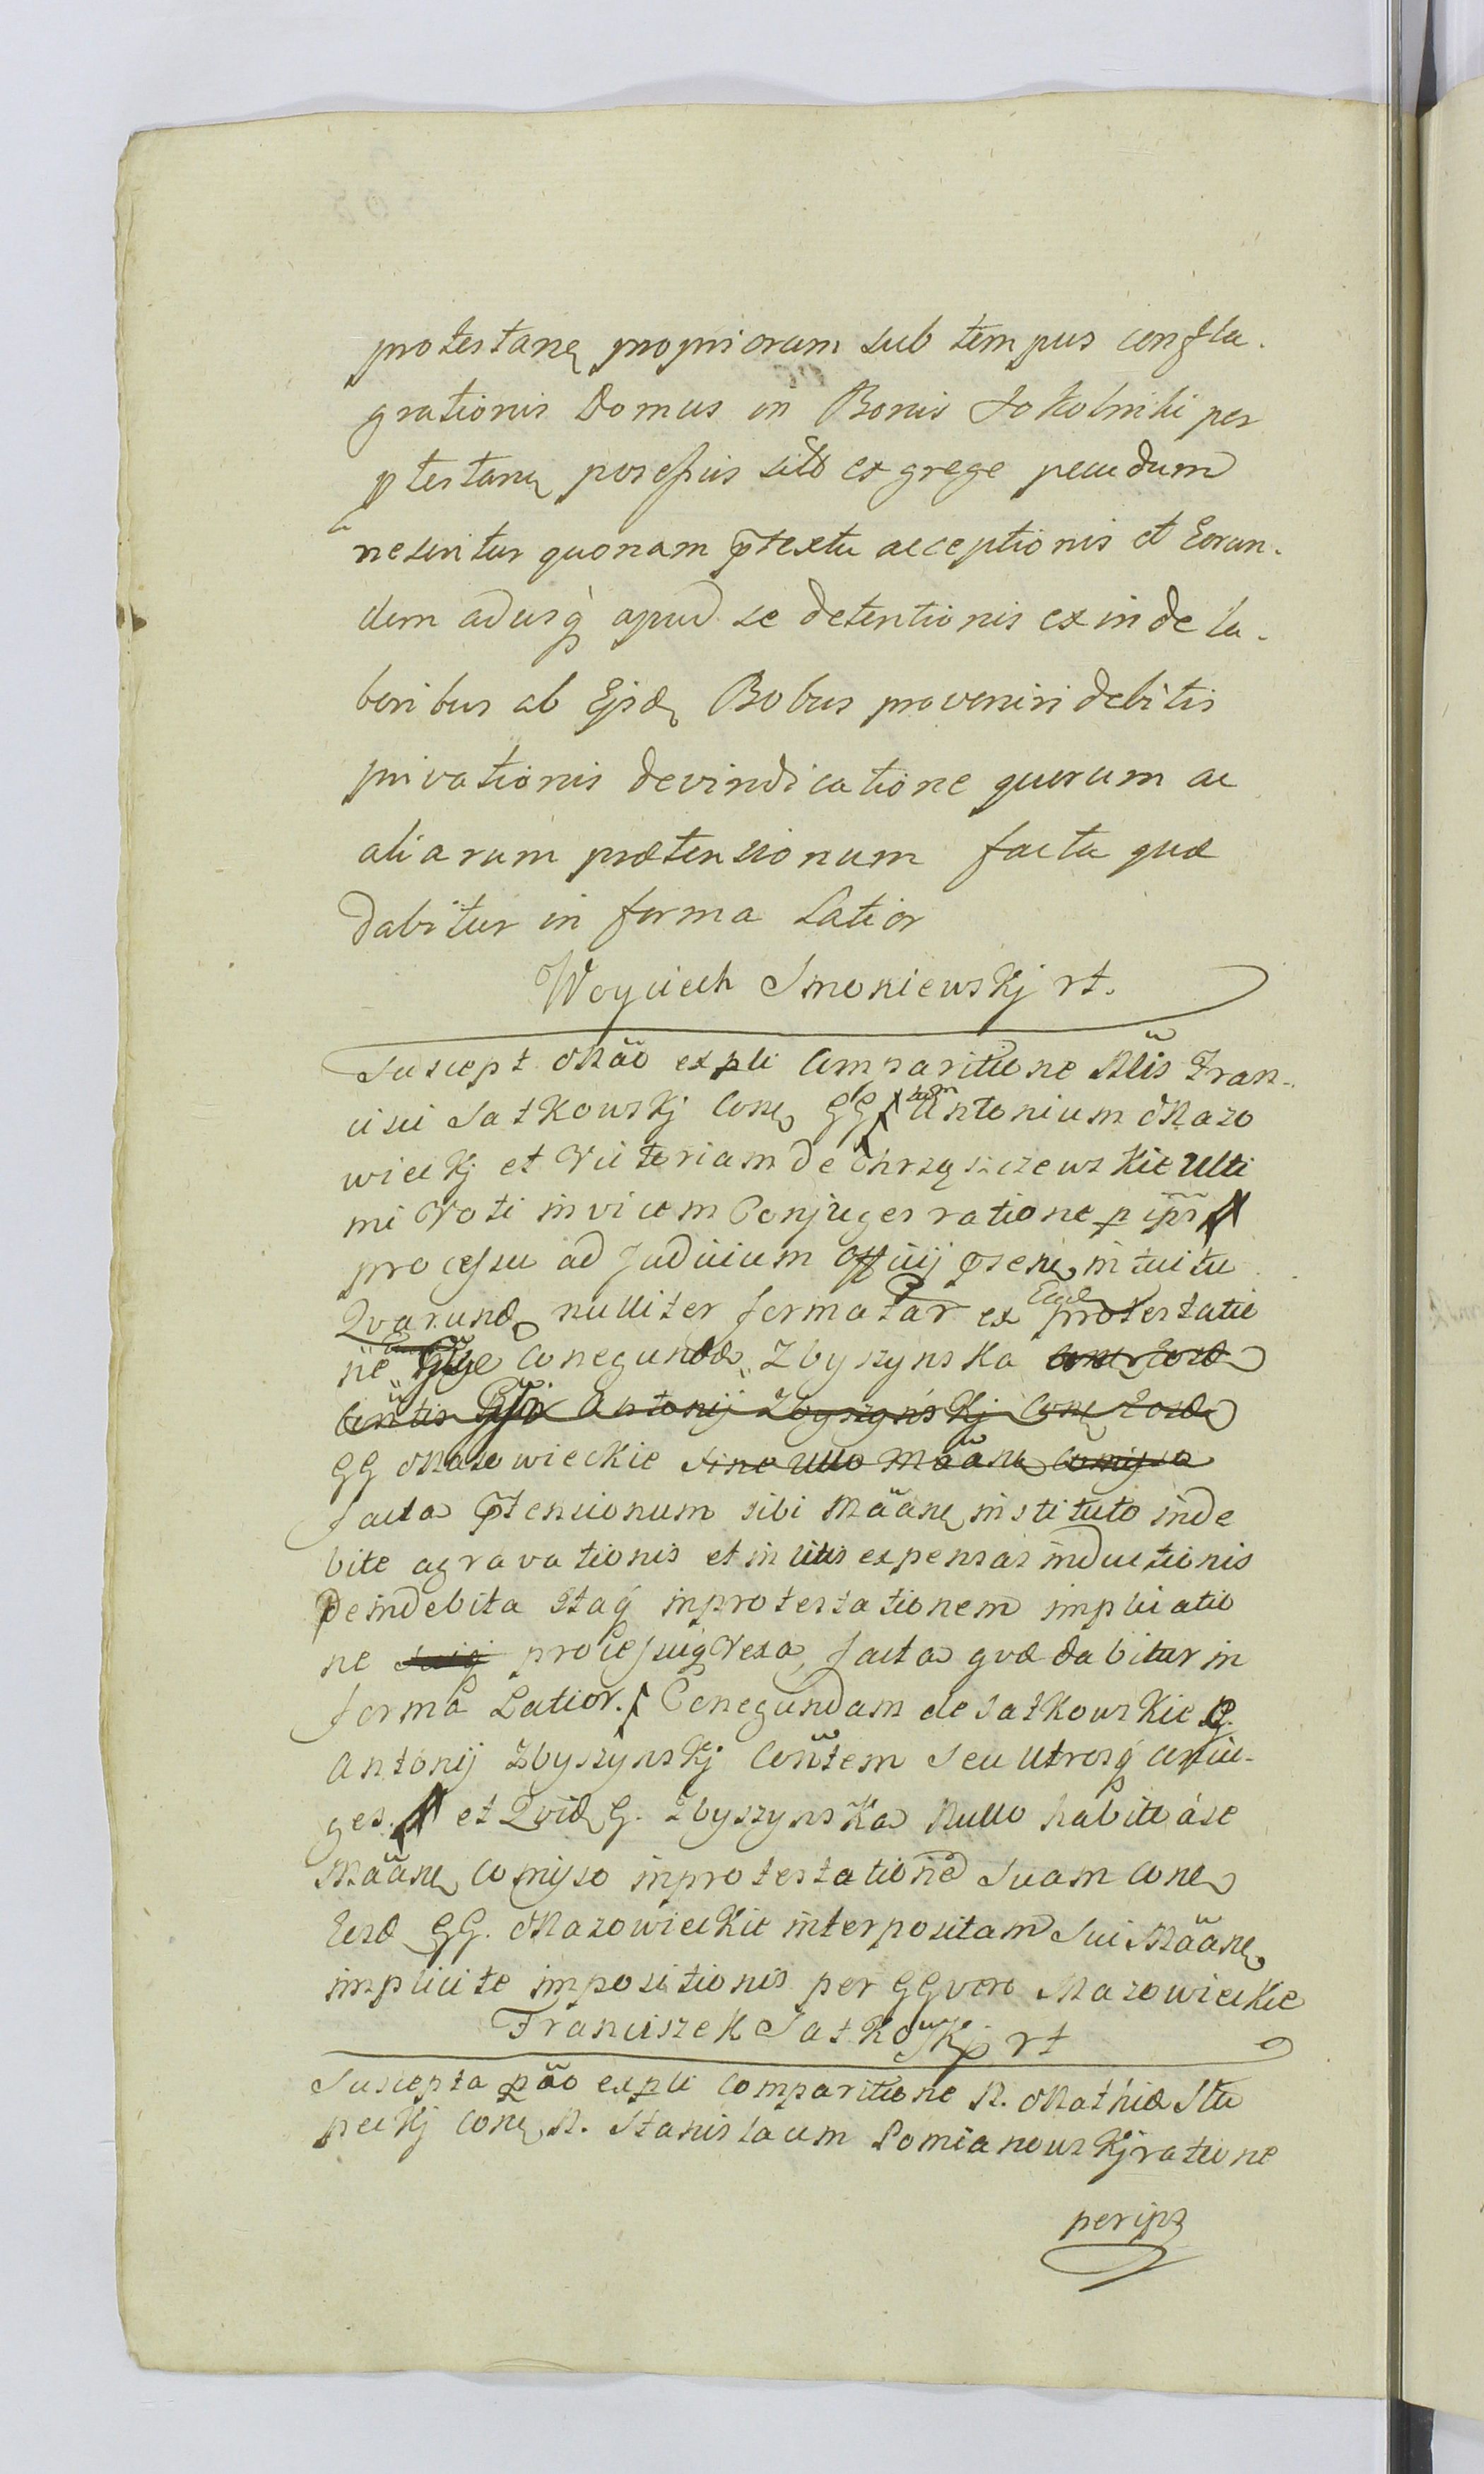 protestane propriorum sub tempus confla.
grationis Domus in Bonis Sokolniki per
ptestane porepius sub ex grege pecudum
nescitur quonam ptextu acceptionis et Eorun.
dem adusq apud se detentionis exinde la.
boribus ab Ejsde Bobus proveniri debitis
privationis devindicatione quorum ac
aliarum prætensionum facta quæ
dabitur in forma Latior
Woyciech Smoniewskj rt.
Suscept Mão expli Comparitione Nlis Fran-
cisci Satkowskj Cone GG Antonium Mazo
wieckj et Victoriam de Chrząszczewskie Ulti
mi Voti invicem Conjuges ratione p ips
processu ad Judicium Officij psens intuitu
Qvarund nulliter format ex Ead protestatio
ne Gse Conegundæ Zbyszynska cone Eosd
Contis Gsi Antonij Zbyszynskj Cone Eosd
GG Mazowieckie sine ullo Mãane comisso
facta ptensionum sibi Mãane instituto inde
bite agravationis et in litis expensas inductionis
De indebita Itaq inprotestationem implicatio
ne suiq processuiq Vexa, facta qvæ dabitur in
forma Latior. Conegundam de Satkowskie G.
Antonij Zbyszynskj Contem seu Utrosq conju-
ges. et Qvid G. Zbyszynska Nullo habito a se
Mãane Comisso inprotestatione Suam cone
Eosd GG. Mazowieckie interpositam Sui Mãane
implicite impositionis per GG vero Mazowieckie
Franciszek Satkowskj rt
Suscepta pão expli comparitione N. Mathiæ Stu
peckj cone N. Stanislaum Pomianowskj ratione
per ips